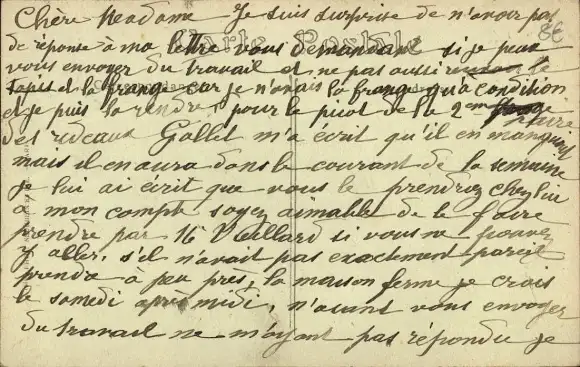 Chère Madame Je suis surprise de n'avoir pas
de réponse à ma lettre vous demandant si je peux
vous envoyer du travail et ne pas aussi
tapis et la frange car je n'avais la frange qu'à condition
et je puis la rendre, pour le picot de la 2eme paire
des rideaux Gallet m'a écrit qu'il en manquait
mais il en aura dans le courant de la semaine
je lui ai écrit que vous le prendrez chez lui
à mon compte soyez aimable de le faire
prendre par Mr si vous ne pouvez
y aller, s'il n'avait pas exactement pareil
prendre à peu près, la maison ferme je crois
le samedi après midi, vous envoyer
du travail ne m'ayant pas répondu je
Carte Postale